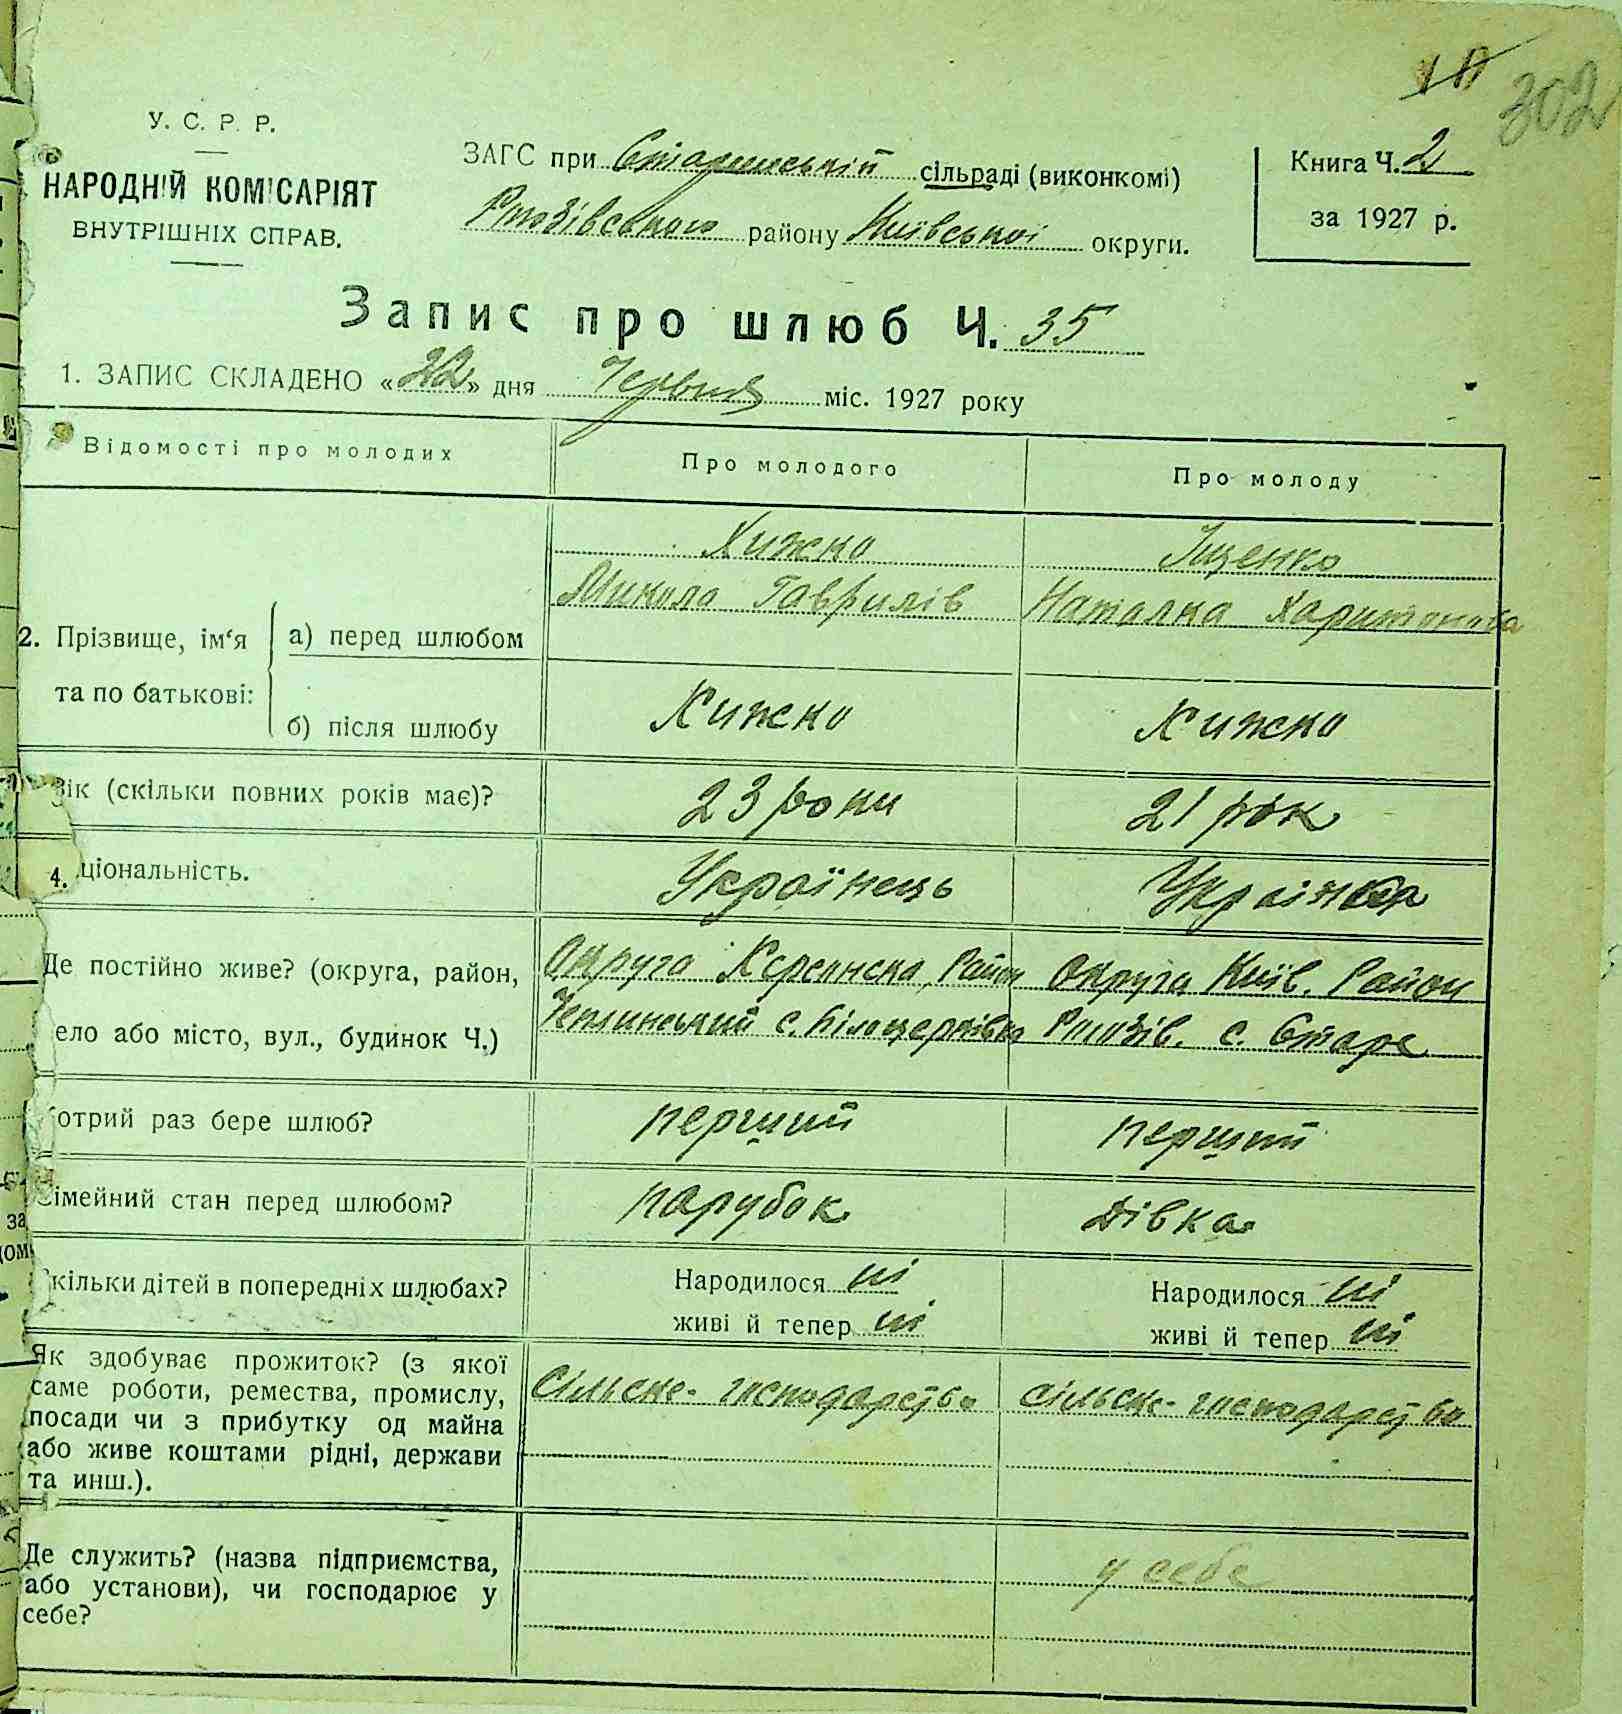 302
У. С. Р. Р.
НАРОДНІЙ КОМІСАРІЯТ
ВНУТРІШНІХ СПРАВ.
ЗАГС при Старинській сільраді (виконкомі)
Ржозівського району Київської округи.
Книга Ч. 2
за 1927 р.
Запис про шлюб Ч. 35
1. ЗАПИС СКЛАДЕНО «22» дня Червня міс. 1927 року
Відомості про молодих
Про молодого
Про молоду
2. Прізвище, ім‘я та по батькові:
а) перед шлюбом
Хижко
Микола Гаврилів
Іщенко
Наталка Харитонова
б) після шлюбу
Хижко
Хижко
Вік (скільки повних років має)?
23 роки
21 рік
4. ціональність.
Українець
Українка
Де постійно живе? (округа, район,
ело або місто, вул., будинок Ч.)
Округа Херсонска, Район
с. Білоцерківка
Округа Київ. Район
Ржозів. с. Старе
отрий раз бере шлюб?
перший
перший
імейний стан перед шлюбом?
парубок
дівка
кільки дітей в попередніх шлюбах?
Народилося ні
живі й тепер ні
Народилося ні
живі й тепер ні
Як здобуває прожиток? (з якої
саме роботи, ремества, промислу,
посади чи з прибутку од майна
або живе коштами рідні, держави
та инш.).
Сільске-господарство
сільске-господарство
Де служить? (назва підприємства,
або установи), чи господарює у
себе?
у себе